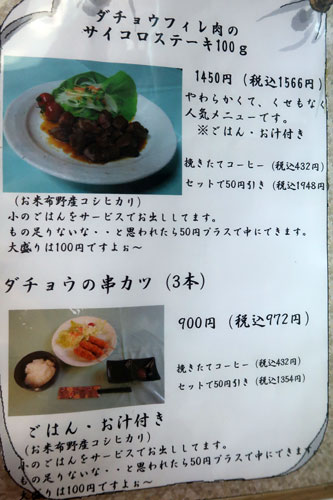 ダチョウフィレ肉の
サイコロステーキ100g
1450円 (税込1566円)
やわらかくて、くせもなく
人気メニューです。
※ごはん・お汁付き
挽きたてコーヒー (税込432円)
セットで50円引き (税込1948円
(お米布野産コシヒカリ)
小のごはんをサービスでお出ししてます。
もの足りないな・・と思われたら50円プラスで中にできます。
大盛りは100円ですよぉ～
ダチョウの串カツ (3本)
900円 (税込972円)
挽きたてコーヒー (税込432円)
セットで50円引き (税込1354円)
ごはん・お汁付き
(お米布野産コシヒカリ)
小のごはんをサービスでお出ししてます。
もの足りないな・・と思われたら50円プラスで中にできます
大盛りは100円ですよぉ～